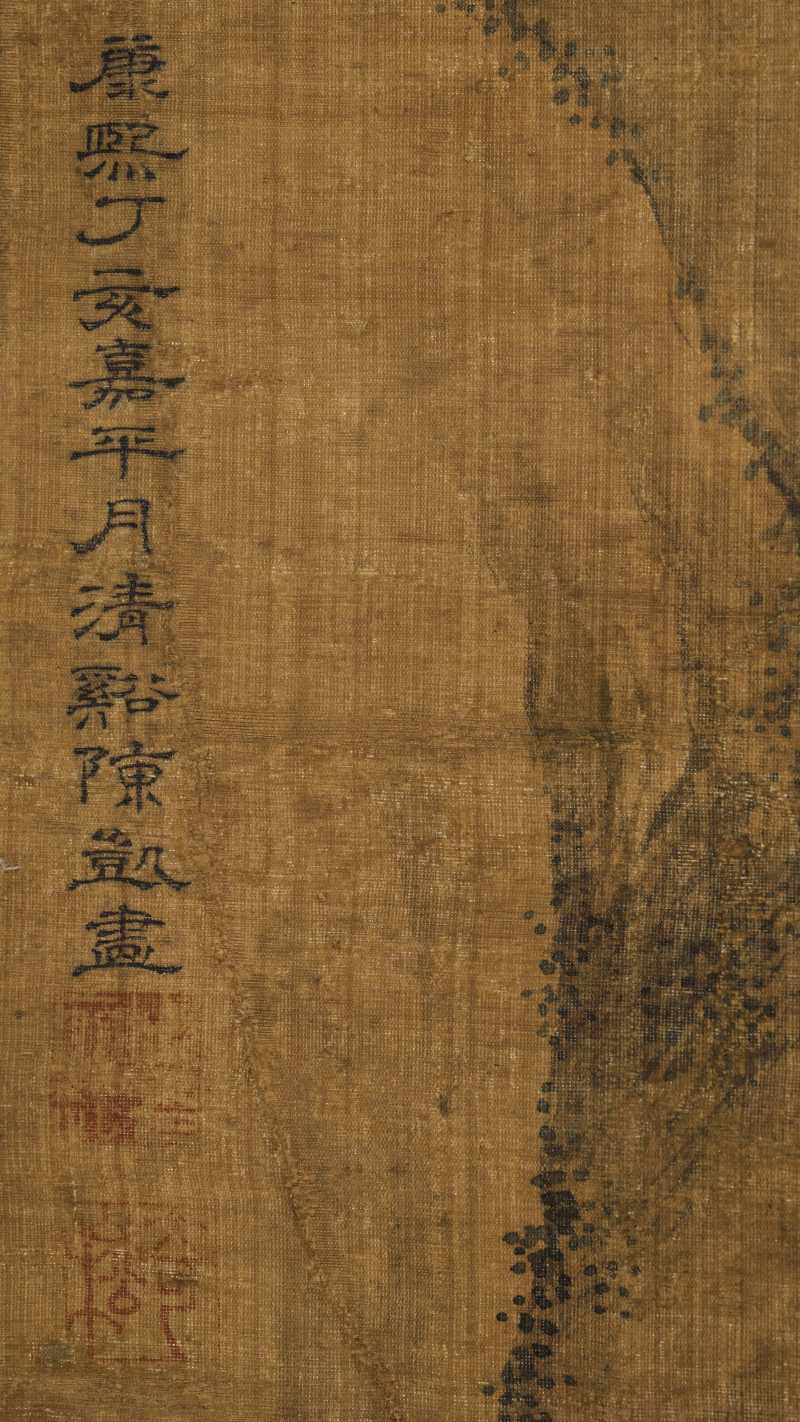 康熙丁亥嘉平月清谿陳凱畫